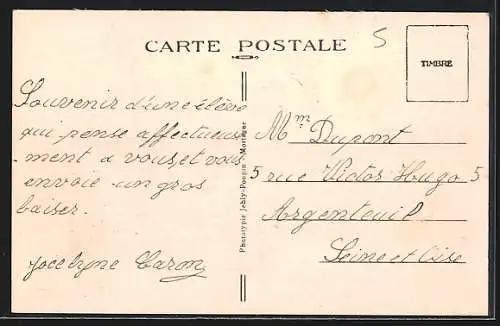 CARTE POSTALE
5
TIMBRE
Souvenir d'une élève
qui pense affectueuse
ment a vous, et vous
envoie un gros
baiser.
Jocelyne Caron
Phototypie Jehly-Poupin Mortagne
Mm Dupont
5 rue Victor Hugo 5
Argenteuil
Seine et Oise